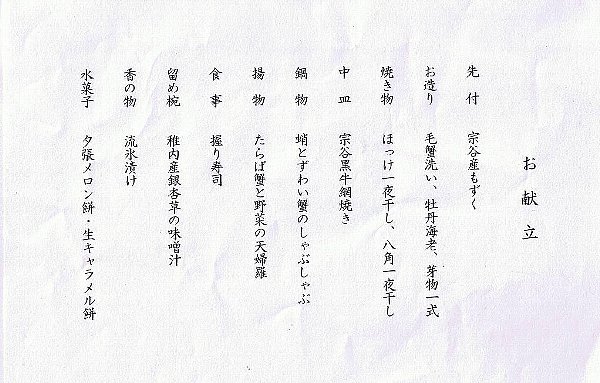 お献立
先付 宗谷産もずく
お造り 毛蟹洗い、牡丹海老、芽物一式
焼き物 ほっけ一夜干し、八角一夜干し
中皿 宗谷黒牛網焼き
鍋物 蛸とずわい蟹のしゃぶしゃぶ
揚物 たらば蟹と野菜の天婦羅
食事 握り寿司
留め椀 稚内産銀杏草の味噌汁
香の物 流氷漬け
水菓子 夕張メロン餅・生キャラメル餅